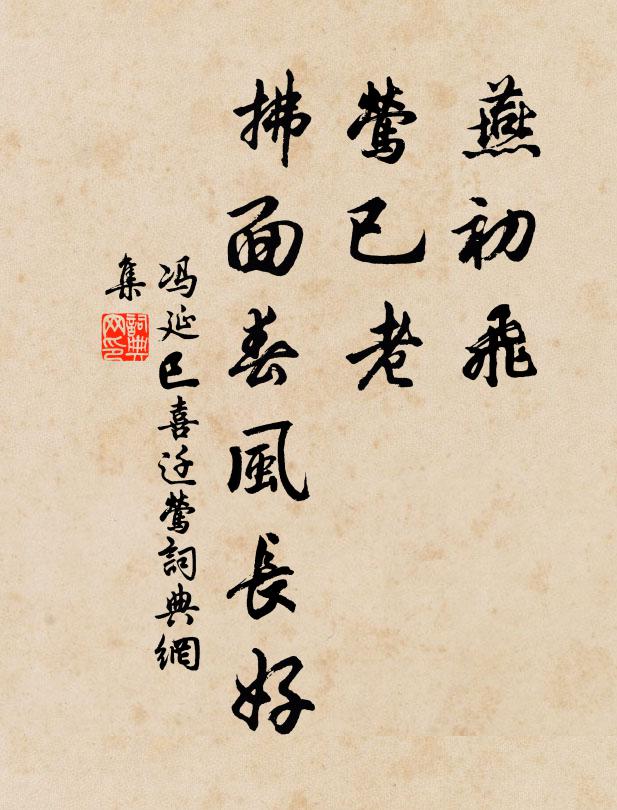 燕初飛
鶯已老
拂面春風長好
冯延巳喜迁鶯詞典網
集
詞典
网印